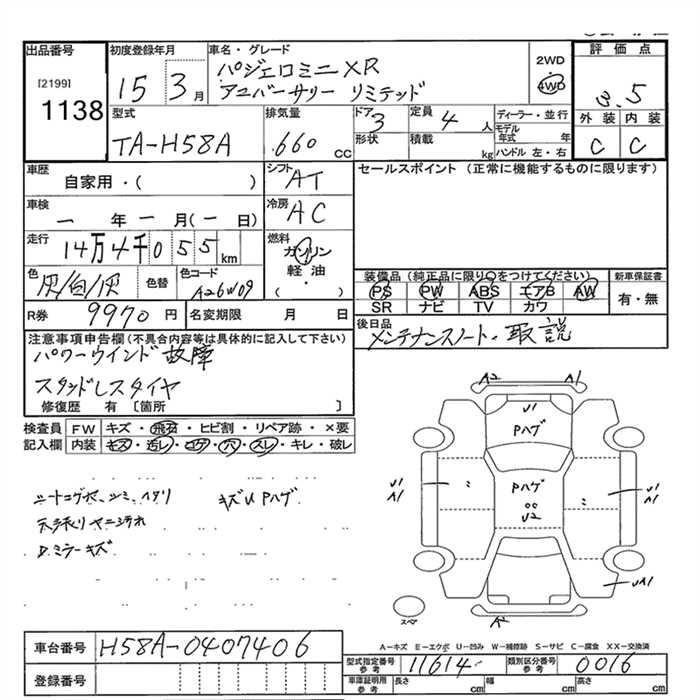 出品番号
[2199]
1138
初度登録年月
15 3月
車名・グレード
パジェロミニXR
アニバーサリー リミテッド
2WD
4WD
評価点
3.5
外装 内装
C C
型式
TA-H58A
排気量
660 CC
ドア
3
形状
定員
4人
積載
kg
ディーラー・並行
モデル年式 年
ハンドル 左・右
車歴
自家用・( )
シフト
AT
セールスポイント (正常に機能するものに限ります)
車検
ー年ー月(ー日)
冷房
AC
走行
14万4千055km
燃料
ガソリン
軽油
( )
色
灰/白/灰
色替
色コード
A26W09
装備品(純正品に限り○をつけてください)
PS PW ABS エアB AW
SR ナビ TV カワ
新車保証書
有・無
R券 9970円
名変期限 月 日
後日品
メンテナンスノート・取説
注意事項申告欄(不具合内容等は具体的に記入して下さい)
パワーウインド故障
スタッドレスタイヤ
修復歴 有 〔箇所 〕
検査員記入欄
FW キズ・飛石・ヒビ割・リペア跡・×要
内装 キズ・汚レ・コゲ・穴・スレ・キレ・破レ
シートコゲ穴、シミ、ヘタリ
キズU Pハゲ
天張りヤニ汚れ
D.ミラーキズ
A2 A1
U1
Pハゲ
U1
A1
Pハゲ
U2
U1
A1
UA1
スペア
A2
A-キズ E-エクボ U-凹み W-補修跡 S-サビ C-腐食 XX-交換済
車台番号 H58A-0407406
登録番号
型式指定番号 参考 11614
類別区分番号 参考 0016
車庫証明用 参考 長さ cm 幅 cm 高さ cm